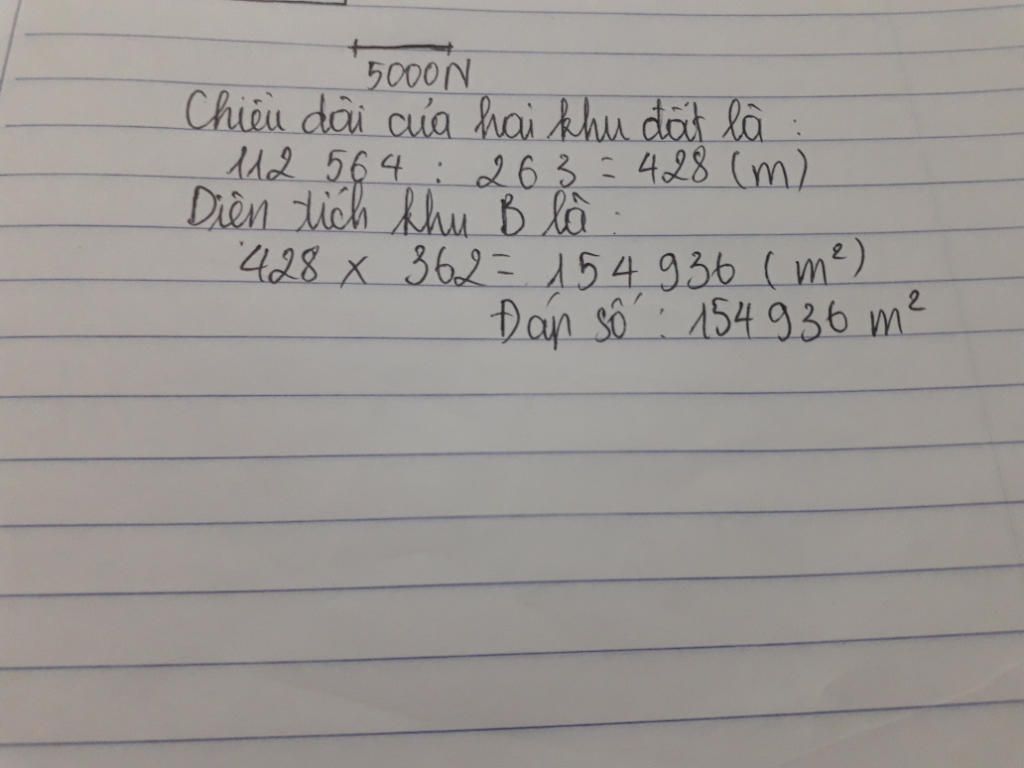 5000N
Chiều dài của hai khu đất là :
112 564 : 263 = 428 (m)
Diện tích khu B là :
428 x 362 = 154 936 (m²)
Đáp số : 154 936 m²